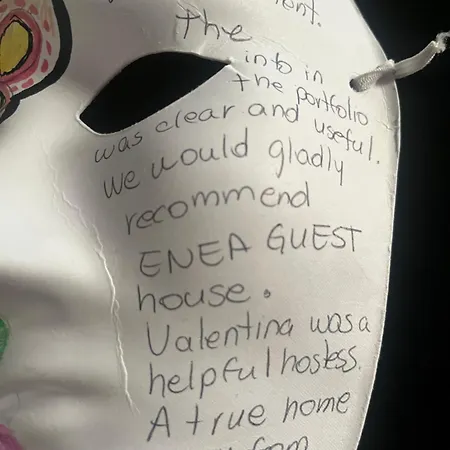 ent.
the
info in
the portfolio
was clear and useful.
we would gladly
recommend
ENEA GUEST
house.
Valentina was a
helpful hostess.
A true home
from